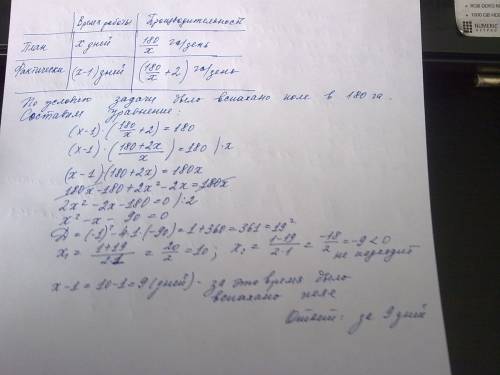 Время работы Производительность
План x дней 180/x га/день
Фактически (x-1) дней (180/x + 2) га/день
По условию задачи было вспахано поле в 180 га.
Составим уравнение:
(x-1)·(180/x + 2) = 180
(x-1)·((180+2x)/x) = 180 |·x
(x-1)(180+2x) = 180x
180x-180+2x²-2x = 180x
2x²-2x-180 = 0 |:2
x²-x-90 = 0
D = (-1)²-4·1·(-90) = 1+360 = 361 = 19²
x₁ = (1+19)/(2·1) = 20/2 = 10; x₂ = (1-19)/(2·1) = -18/2 = -9 < 0
не подходит
x-1 = 10-1 = 9 (дней) - за это время было
вспахано поле
Ответ: за 9 дней
NUMERIC